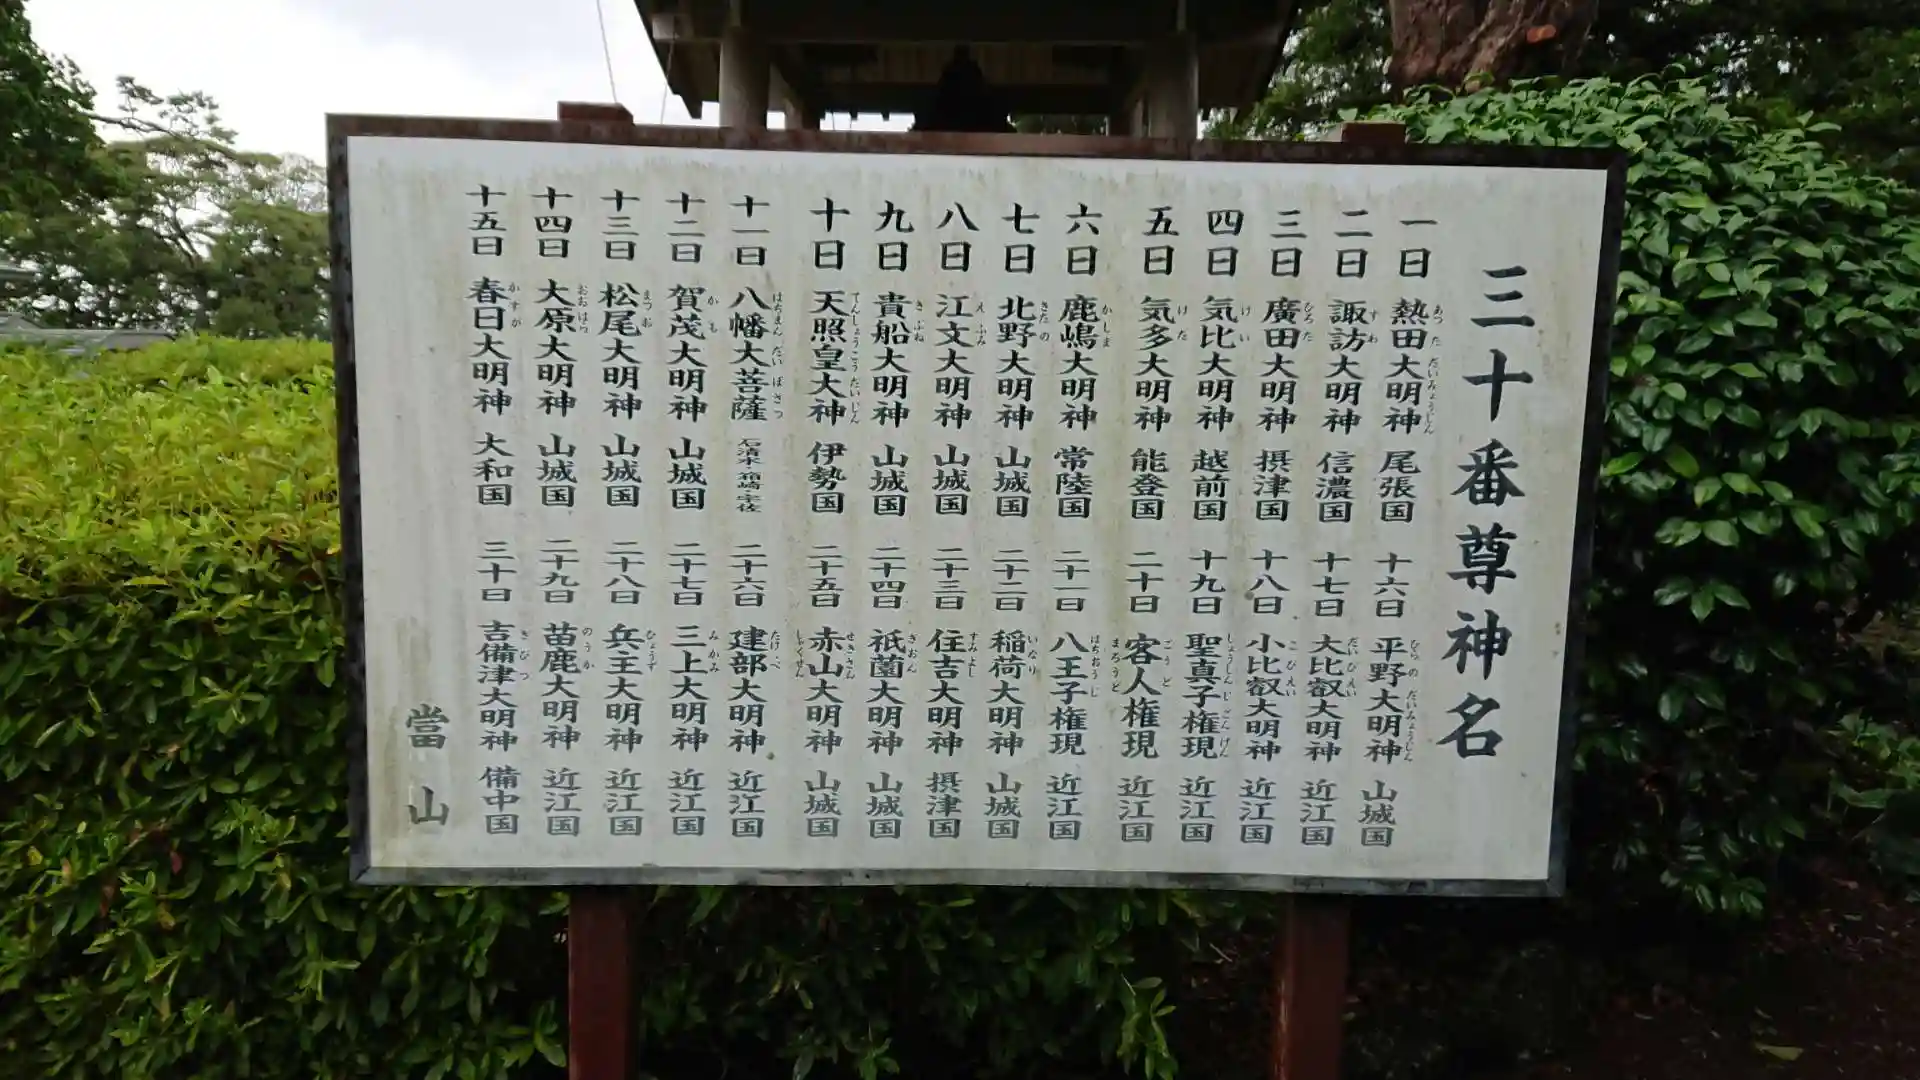 三十番尊神名
一日 熱田大明神 尾張国
二日 諏訪大明神 信濃国
三日 廣田大明神 摂津国
四日 気比大明神 越前国
五日 気多大明神 能登国
六日 鹿嶋大明神 常陸国
七日 北野大明神 山城国
八日 江文大明神 山城国
九日 貴船大明神 山城国
十日 天照皇大神 伊勢国
十一日 八幡大菩薩 石清水 箱崎 宇佐
十二日 賀茂大明神 山城国
十三日 松尾大明神 山城国
十四日 大原大明神 山城国
十五日 春日大明神 大和国
十六日 平野大明神 山城国
十七日 大比叡大明神 近江国
十八日 小比叡大明神 近江国
十九日 聖真子権現 近江国
二十日 客人権現 近江国
二十一日 八王子権現 近江国
二十二日 稲荷大明神 山城国
二十三日 住吉大明神 摂津国
二十四日 祇園大明神 山城国
二十五日 赤山大明神 山城国
二十六日 建部大明神 近江国
二十七日 三上大明神 近江国
二十八日 兵主大明神 近江国
二十九日 苗鹿大明神 近江国
三十日 吉備津大明神 備中国
當山